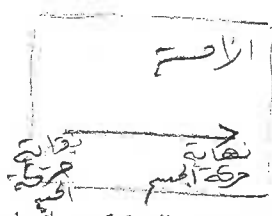 الازاحة
بداية
حركة
الجسم
نهاية
حركة الجسم